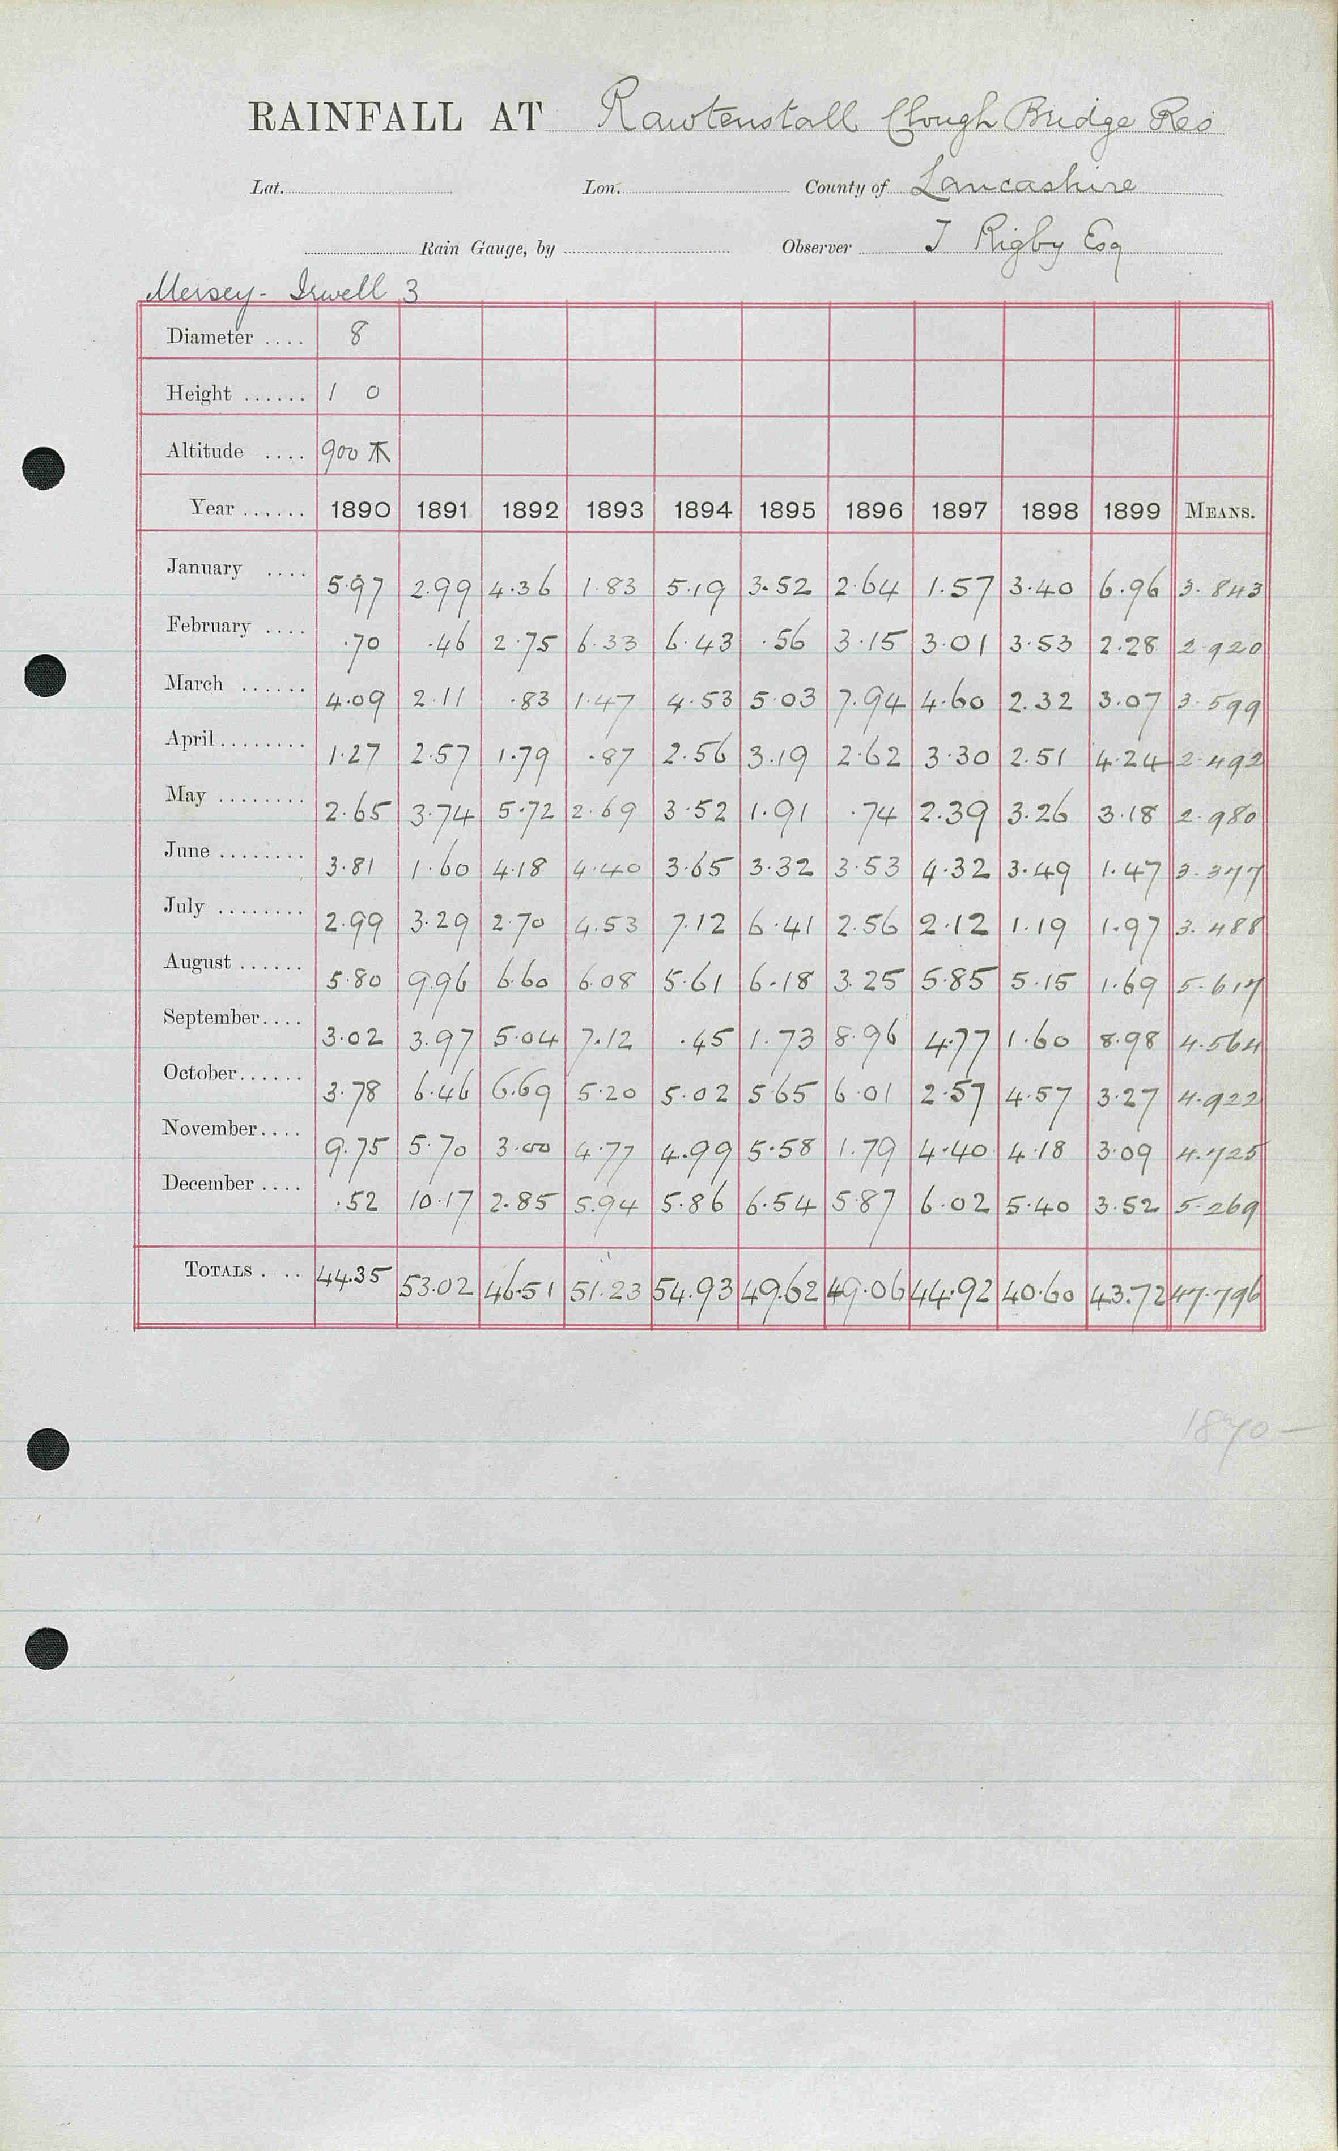 RAINFALL AT Rawtenstall Clough Bridge Res
Lat. Lon. County of Lancashire
Rain Gauge, by Observer J Rigby Esq
Mersey - Irwell 3
Diameter .... 8
Height ...... 1 0
Altitude .... 900
Year ...... 1890 1891 1892 1893 1894 1895 1896 1897 1898 1899 MEANS.
January .... 5.97 2.99 4.36 1.83 5.19 3.52 2.64 1.57 3.40 6.96 3.843
February .... .70 .46 2.75 6.33 6.43 .56 3.15 3.01 3.53 2.28 2.920
March ...... 4.09 2.11 .83 1.47 4.53 5.03 7.94 4.60 2.32 3.07 3.599
April ........ 1.27 2.57 1.79 .87 2.56 3.19 2.62 3.30 2.51 4.24 2.492
May ........ 2.65 3.74 5.72 2.69 3.52 1.91 .74 2.39 3.26 3.18 2.980
June ........ 3.81 1.60 4.18 4.40 3.65 3.32 3.53 4.32 3.49 1.47 3.377
July ........ 2.99 3.29 2.70 4.53 7.12 6.41 2.56 2.12 1.19 1.97 3.488
August ...... 5.80 9.96 6.60 6.08 5.61 6.18 3.25 5.85 5.15 1.69 5.617
September .... 3.02 3.97 5.04 7.12 .45 1.73 8.96 4.77 1.60 8.98 4.564
October ...... 3.78 6.46 6.69 5.20 5.02 5.65 6.01 2.57 4.57 3.27 4.922
November .... 9.75 5.70 3.00 4.77 4.99 5.58 1.79 4.40 4.18 3.09 4.725
December .... .52 10.17 2.85 5.94 5.86 6.54 5.87 6.02 5.40 3.52 5.269
TOTALS .... 44.35 53.02 46.51 51.23 54.93 49.62 49.06 44.92 40.60 43.72 47.796
1870 -